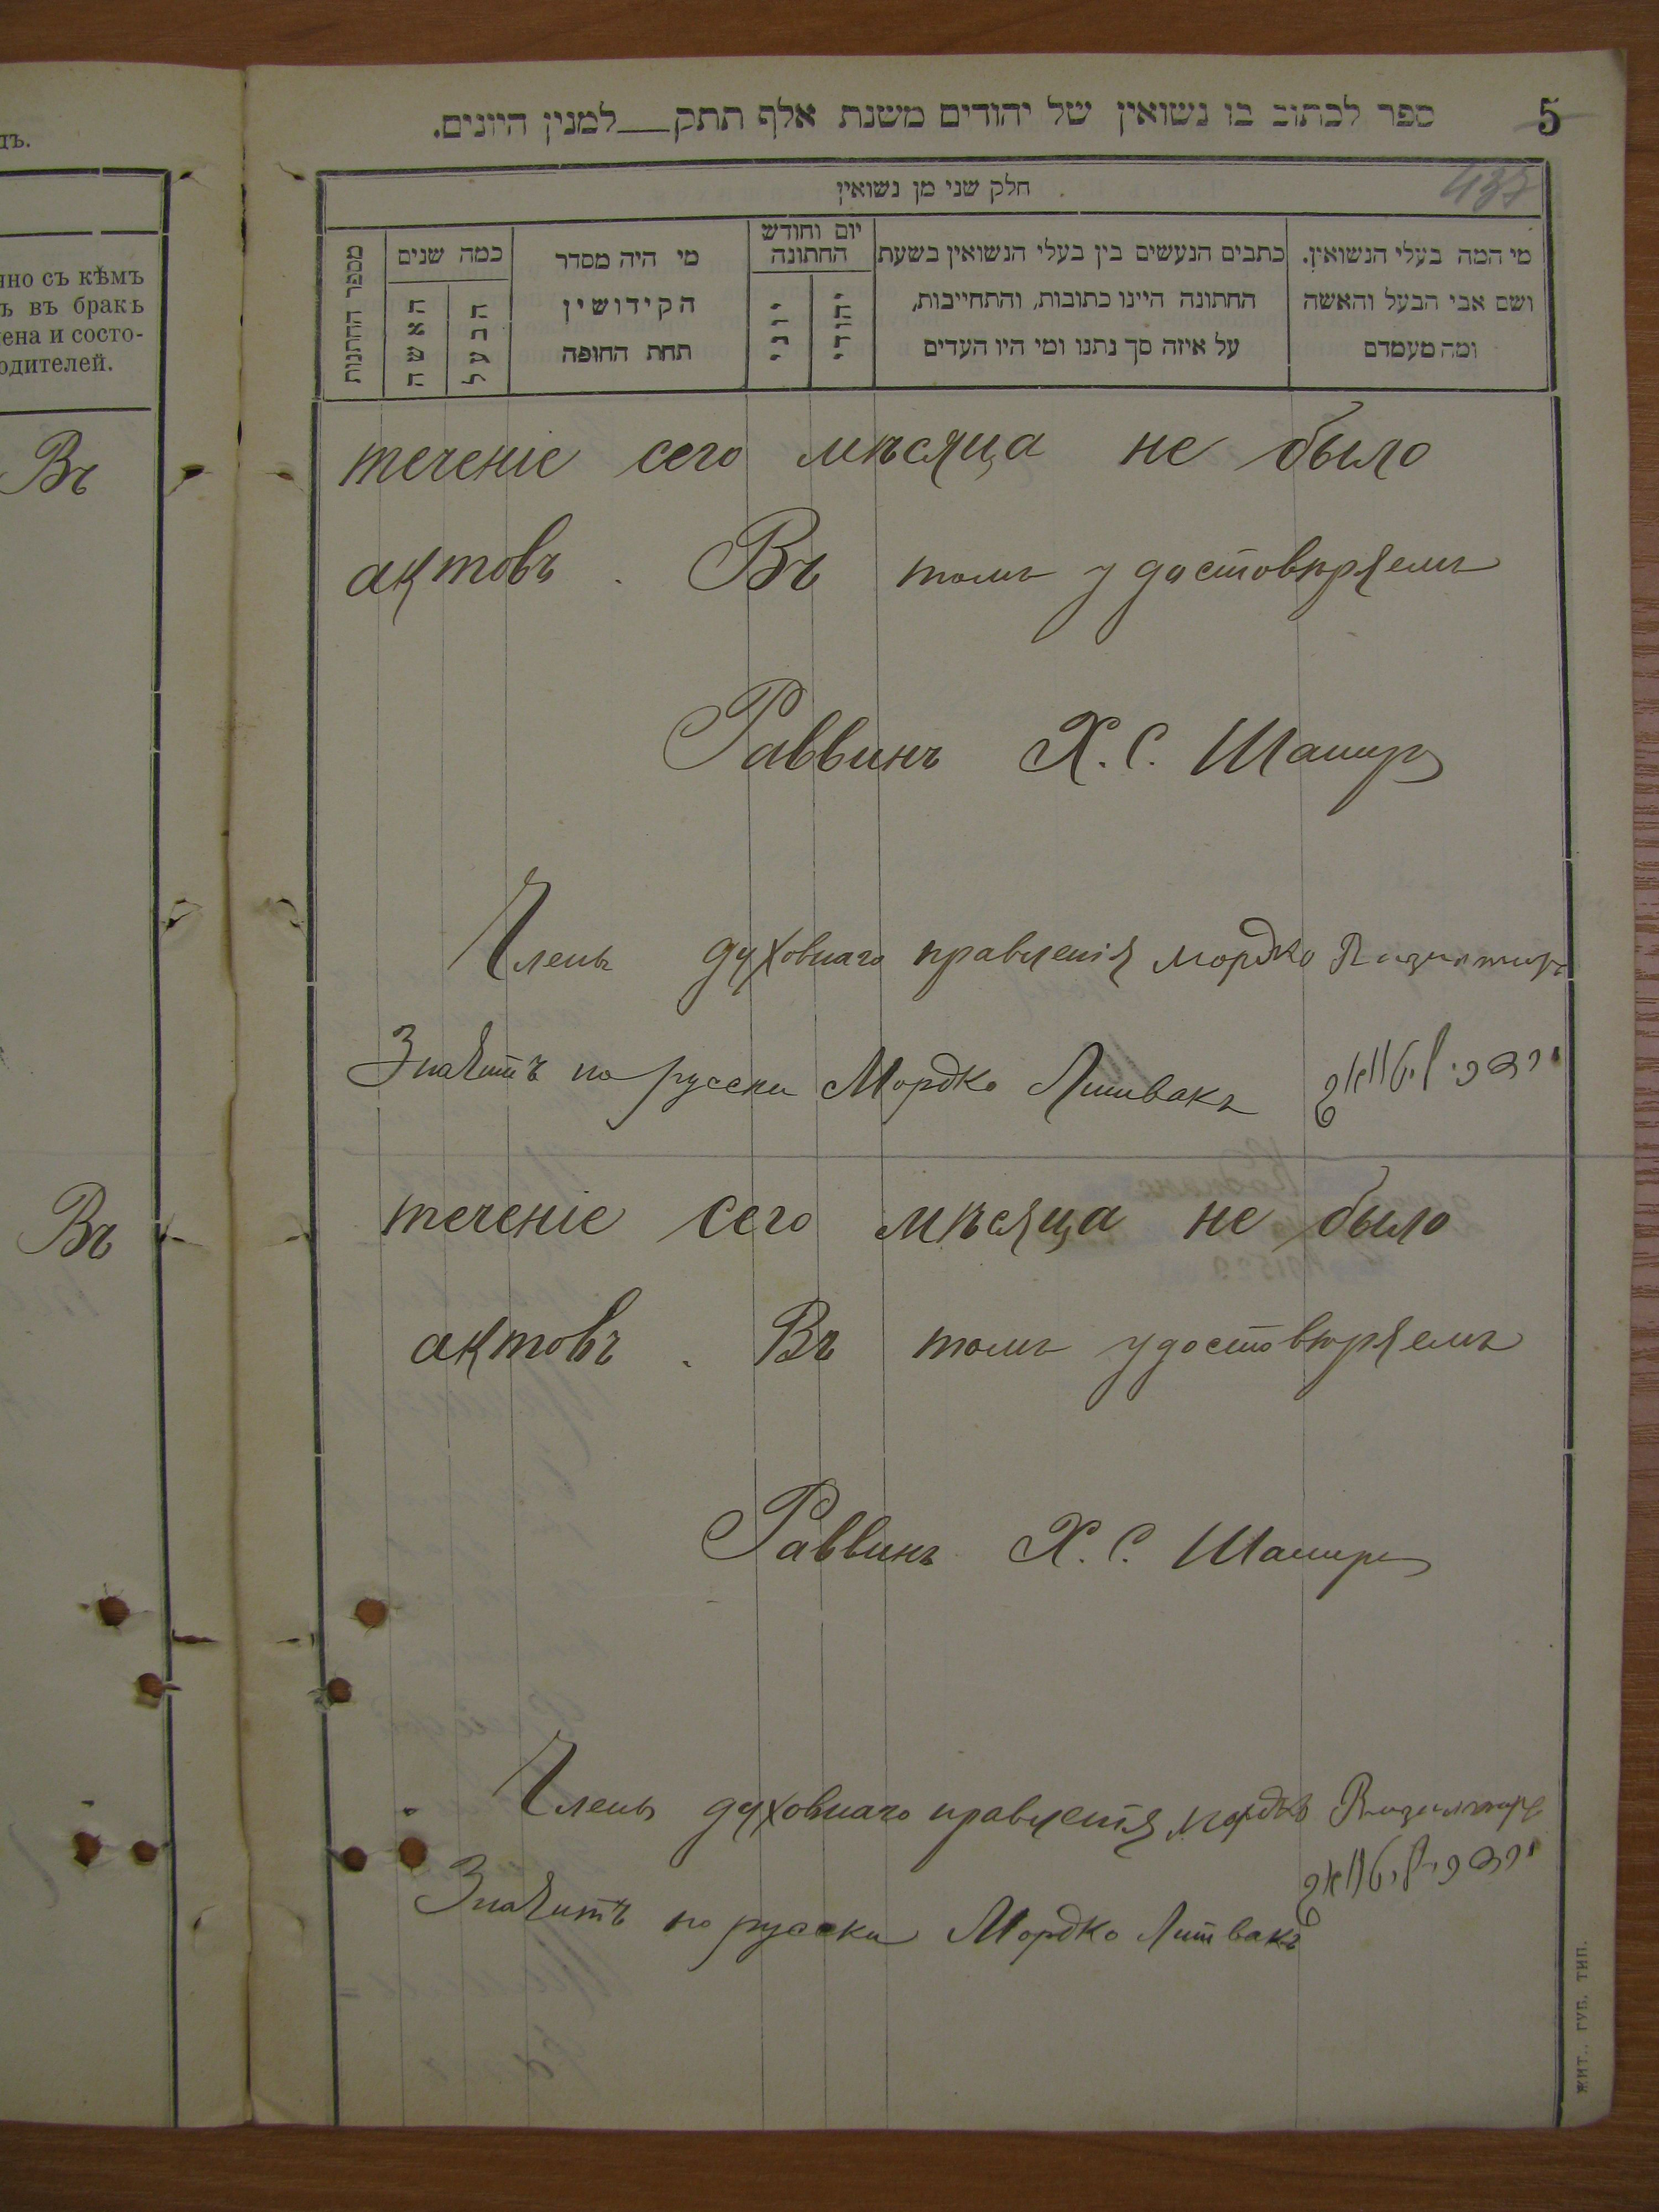 דъ.
нно съ кѣмъ
ъ въ бракъ
ена и состо-
одителей.
Въ
Въ
5
ספר לכתוב בו נשואין של יהודים משנת אלף תתק___למנין היונים.
437
חלק שני מן נשואין
מי המה בעלי הנשואין.
ושם אבי הבעל והאשה
ומה מעמדם
כתבים הנעשים בין בעלי הנשואין בשעת
החתונה היינו כתובות, והתחייבות,
על איזה סך נתנו ומי היו העדים
יום וחודש
החתונה
יהודי
יוני
מי היה מסדר
הקידושין
תחת החופה
כמה שנים
הבעל
האשה
מספר החתנות
теченіе сего мѣсяца не было
актовъ. Въ томъ удостовѣряемъ
Раввинъ Х. С. Шамир
Членъ духовнаго правленія мордко
Значитъ по русски Мордко Литвакъ
теченіе сего мѣсяца не было
актовъ. Въ томъ удостовѣряемъ
Раввинъ Х. С. Шамир
Членъ духовнаго правленія мордко
Значитъ по русски Мордко Литвакъ
ЖИТ. ГУБ. ТИП.